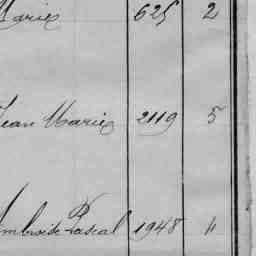 Marie 625 2
Jean Marie 2119 5
Ambroise Pascal 1948 4